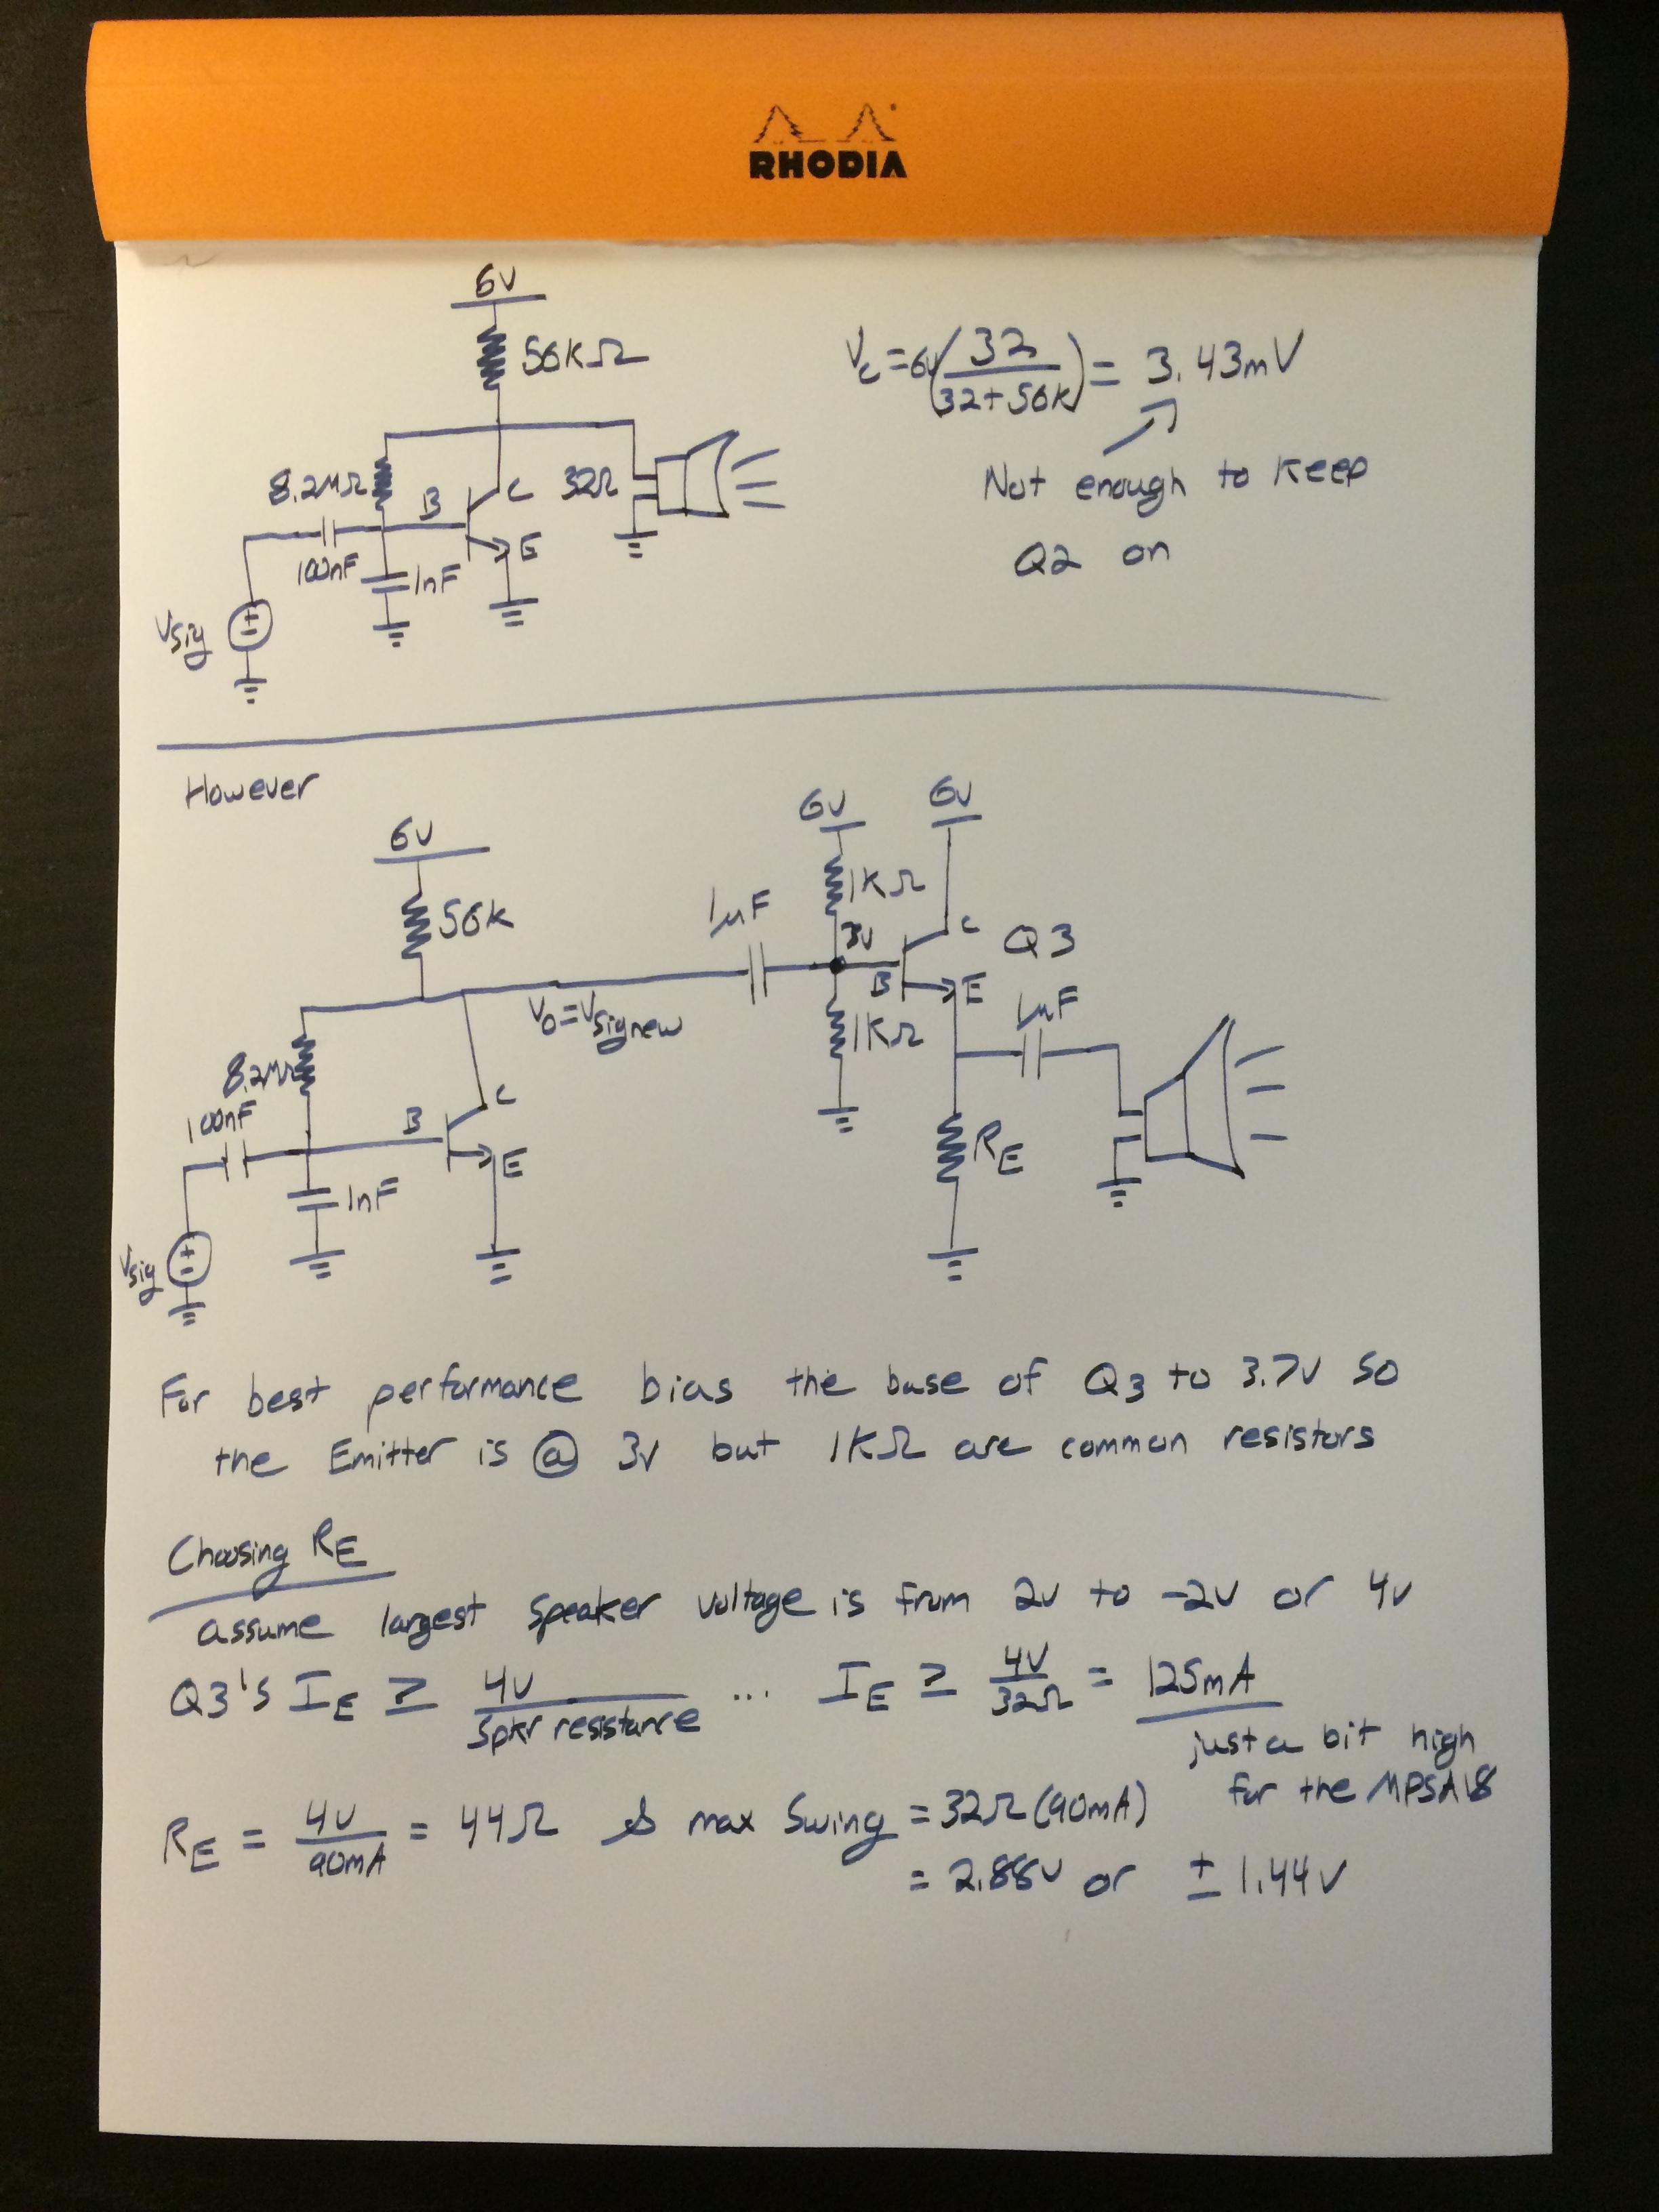 RHODIA
6V
56KΩ
8.2MΩ
B
C
32Ω
E
100nF
1nF
Vsig
Vc = 6V(32/(32+56K)) = 3.43mV
Not enough to keep
Q2 on
However
6V
56K
8.2MΩ
100nF
B
C
E
1nF
Vsig
Vo = Vsignew
1μF
6V
6V
1KΩ
3V
C
Q3
B
E
1KΩ
1μF
RE
For best performance bias the base of Q3 to 3.7V so
the Emitter is @ 3V but 1KΩ are common resistors
Choosing RE
assume largest speaker voltage is from 2V to -2V or 4V
Q3's IE ≥ 4V/Spkr resistance ... IE ≥ 4V/32Ω = 125mA
just a bit high
for the MPSA18
RE = 4V/90mA = 44Ω & max Swing = 32Ω(90mA)
= 2.88V or ± 1.44V